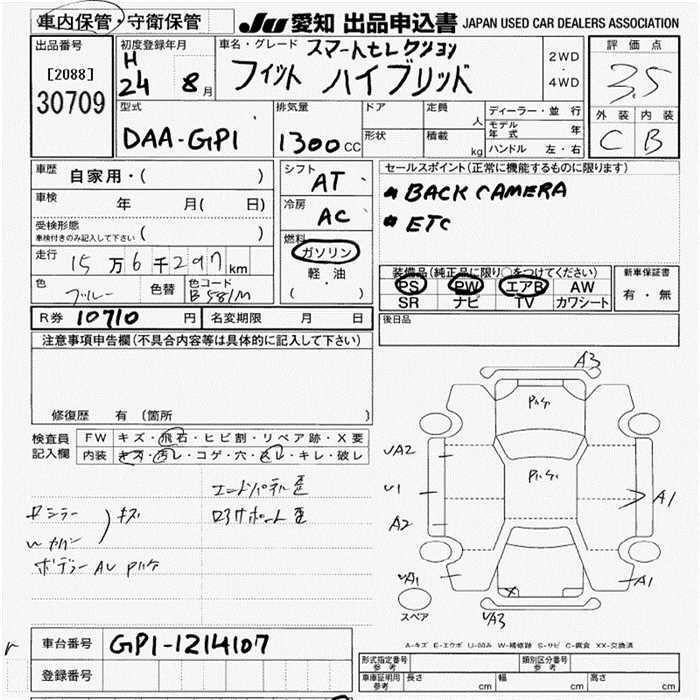 車内保管・守衛保管
JU 愛知 出品申込書 JAPAN USED CAR DEALERS ASSOCIATION
出品番号
[2088]
30709
初度登録年月
H
24 8月
車名・グレード スマートセレクション
フィット ハイブリッド
2WD
・
4WD
評価点
3.5
外装 内装
C B
型式
DAA-GP1
排気量
1300 CC
ドア
形状
定員 人
積載 kg
ディーラー・並行
モデル年式 年
ハンドル 左・右
車歴 自家用・( )
車検 年 月( 日)
受検形態
車検付きのみ記入して下さい ( )
走行 15万6千297km
色 ブルー 色替 色コード B581M
シフト AT
冷房 AC
燃料
ガソリン
軽・油
( )
セールスポイント(正常に機能するものに限ります)
BACK CAMERA
ETC
装備品(純正品に限り○をつけてください)
PS PW エアB AW
SR ナビ TV カワシート
新車保証書
有・無
R券 10710 円 名変期限 月 日
後日品
注意事項申告欄(不具合内容等は具体的に記入して下さい)
修復歴 有(箇所 )
検査員
記入欄
FW キズ・飛石・ヒビ割・リペア跡・X要
内装 キズ・汚レ・コゲ・穴・スレ・キレ・破レ
エンドパネル歪
ロアサポート歪
キズ
A3
UA2
U1
A2
A1
A1
UA3
スペア
A-キズ E-エクボ U-凹み W-補修跡 S-サビ C-腐食 XX-交換済
車台番号 GP1-1214107
登録番号
型式指定番号
参考
類別区分番号
参考
車庫証明用
参考
長さ cm 幅 cm 高さ cm